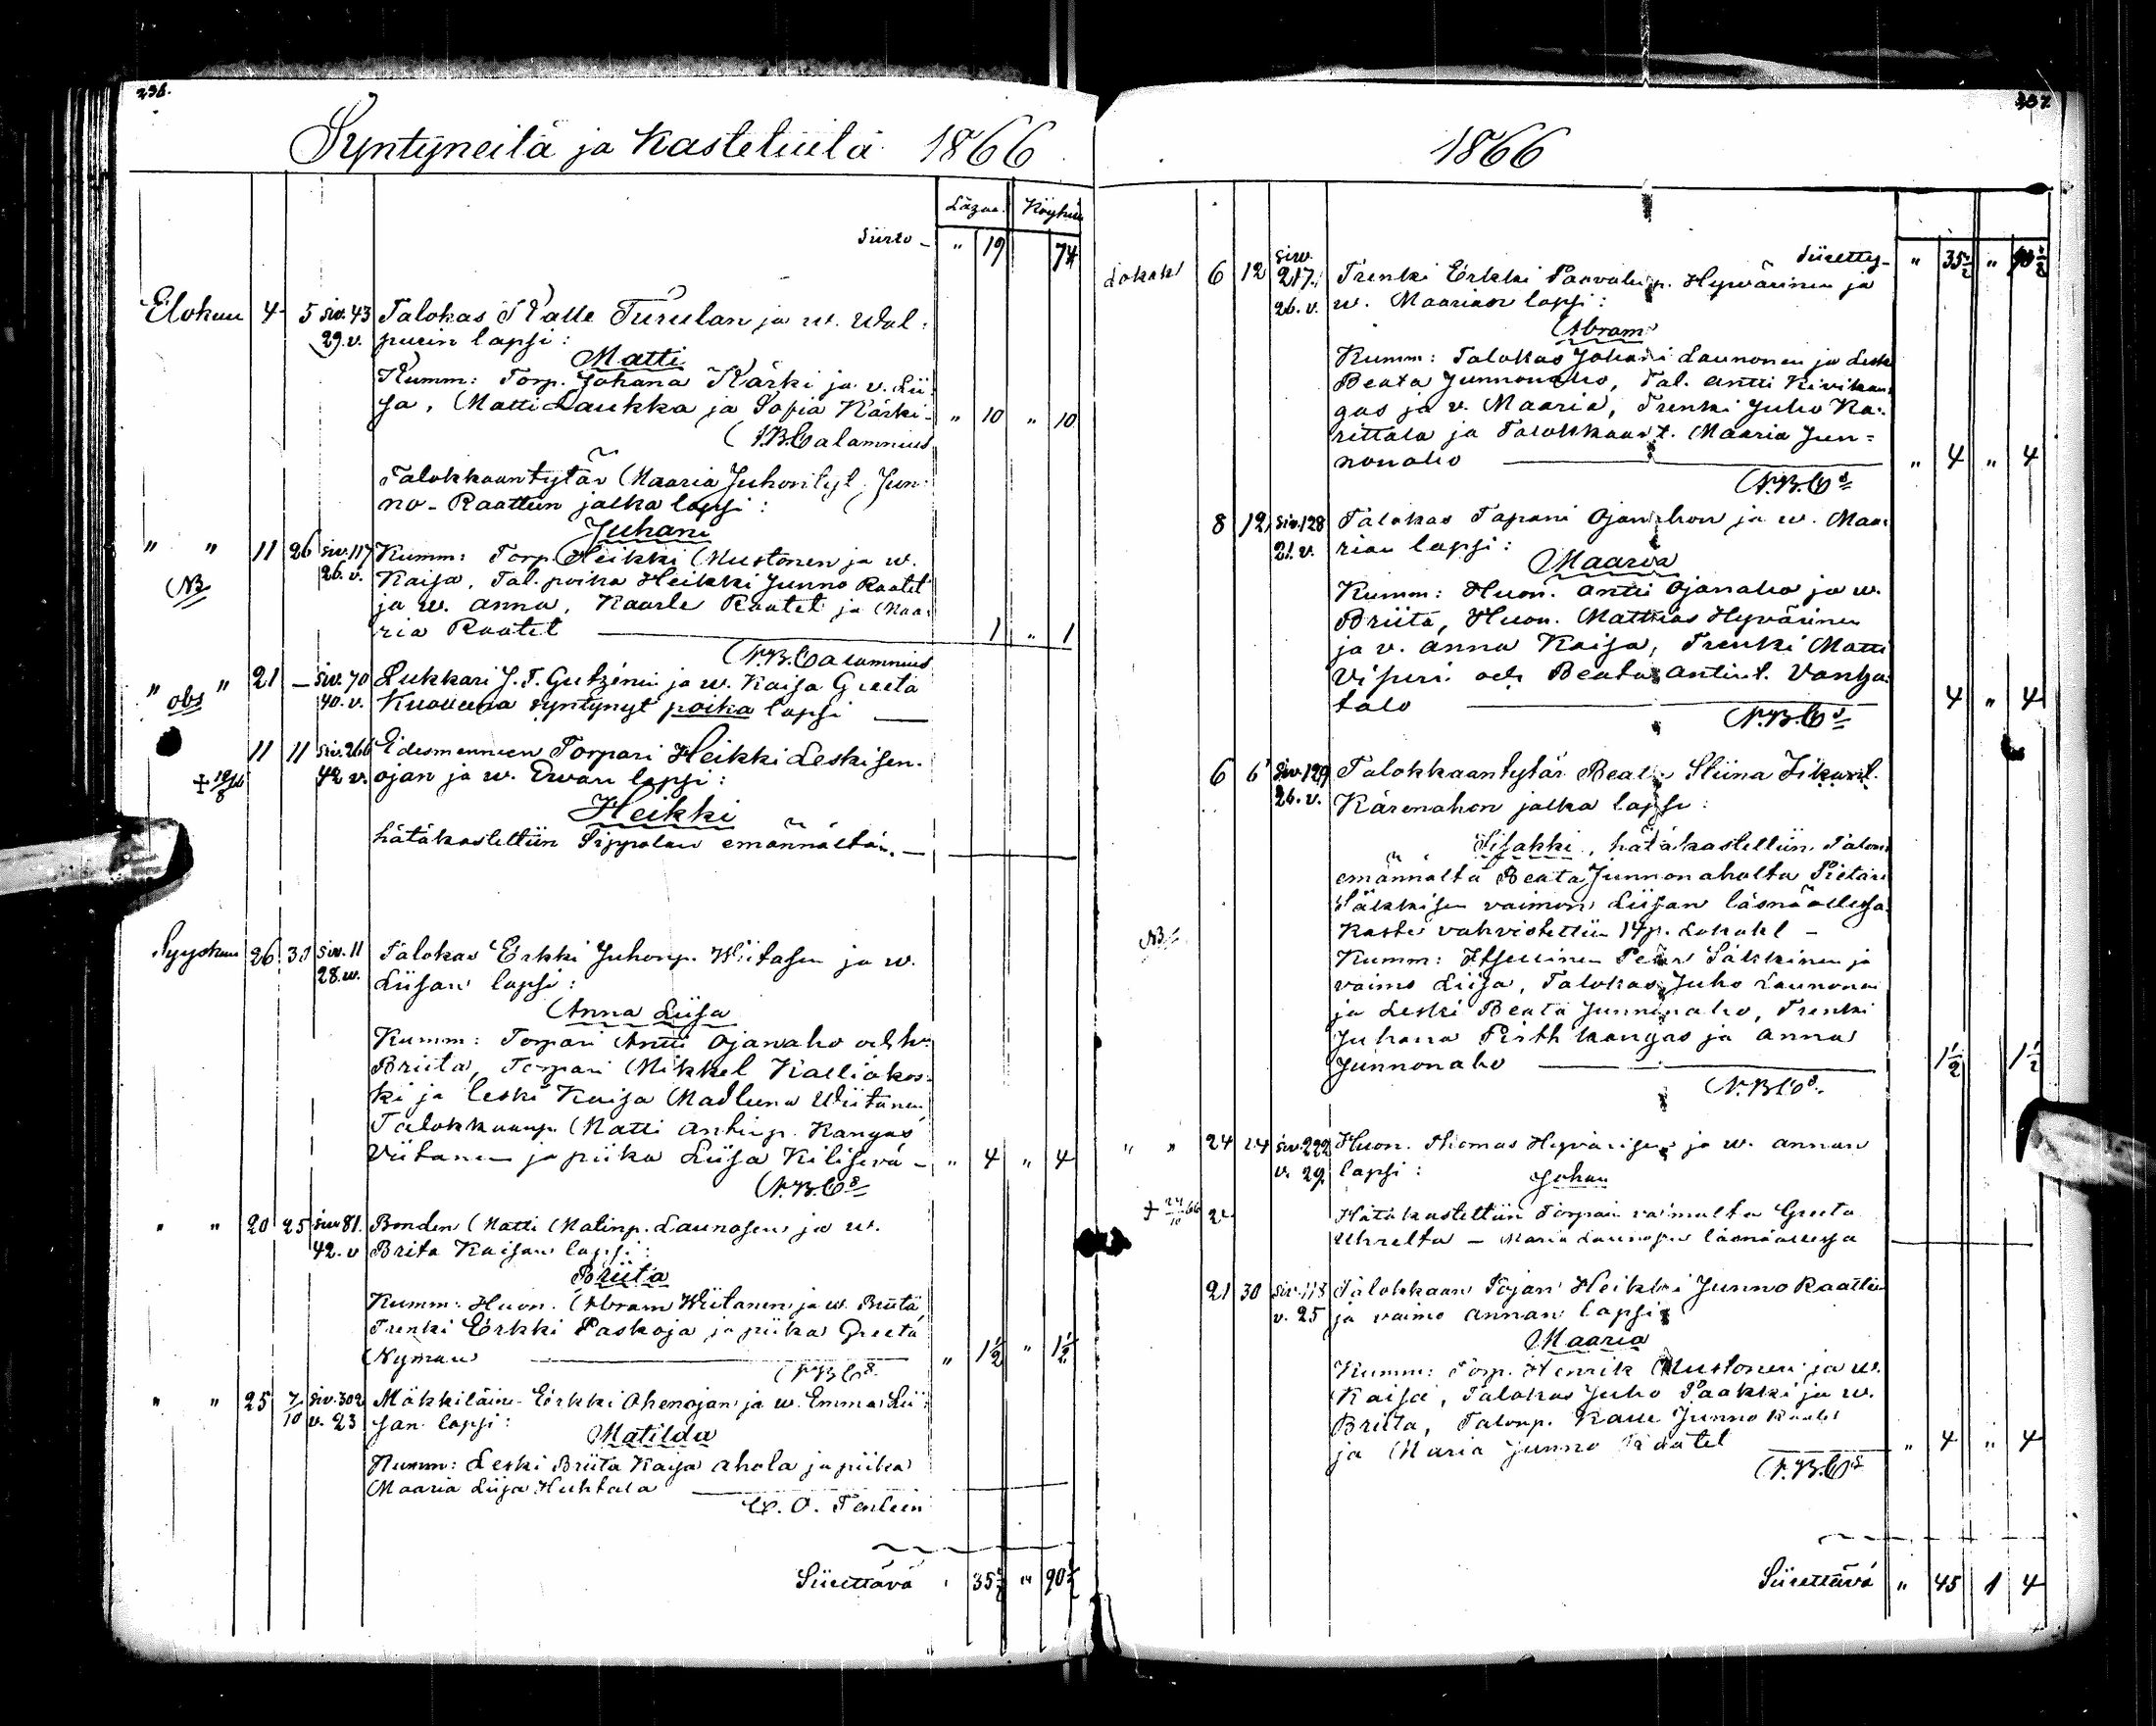 236.
Syntyneitä ja Kastetuita 1866
Läzar. Köyhäin
Siirto - " 19 74
Elokuu 4 5 siv. 43 Talokas Kalle Turulan ja w. Wal:
29. v. purin lapsi:
Matti
Kumm: Torp. Johana Kärki ja v. Lii
sa, Matti Laukka ja Sofia Kärki - " 10 " 10
N.B. Calamnius
Talokkaantytär Maaria Juhontyt. Jun:
no-Raattun jalka lapsi:
Juhani
" " 11 26 siv. 117 Kumm: Torp. Heikki Mustonen ja w.
NB 26. v. Kaisa, Tal. poika Heikki Junno Raatet
ja w. Anna, Kaarle Raatet ja Maa:
ria Raatet 1 " 1
N.B. Calamnius
" obs " 21 - siv. 70 Lukkari J. T. Gutzenin ja w. Kaisa Greeta
40. v. Kuolleena syntynyt poika lapsi
11 11 siv. 266 Edesmenneen Torpari Heikki Leskisen-
42 v. ojan ja w. Ewan lapsi:
Heikki
hätäkastettiin Sippolan emännältä. -
Syyskuu 26 30 siv. 11 Talokas Erkki Juhonp. Wiitasen ja w.
28. w. Liisan lapsi:
Anna Liisa
Kumm: Torpari Antti Ojanaho och h:
Briita, Torpari Mikkel Kalliokos:
ki ja leski Kaisa Madleena Wiitanen,
Talokkaanp. Matti Antinp. Kangas
Viitanen ja piika Liisa Kilisevä - " 4 " 4
N.B. C s
" " 20 25 siv 81. Bonden Matti Matinp. Launosen ja w.
42. v Brita Kaisan lapsi:
Briita
Kumm: Huon. Abram Wiitanen ja w. Briita
Trenki Erkki Paskoja ja piika Greeta
Nyman " 1½ " 1½
N.B. C s.
" " 25 7/10 siv. 302 Mäkkiläin. Erkki Ahenojan ja w. Emma Lii:
v. 23 san lapsi:
Matilda
Kumm: Leski Briita Kaisa Ahola ja piika
Maaria Liisa Huhtala
Siirettävä " 35½ " 90½
1866
Siiretty - " 35½ " 90½
Lokak 6 12 siv. 217. Trenki Erkki Paavalinp. Hyvärinen ja
26. v. w. Maarian lapsi:
Abram
Kumm: Talokas Johani Launonen ja Leski
Beata Junnonaho, Tal. Antti Kivikan:
gas ja v. Maaria, Trenki Juho Ka:
rittala ja Talokkaant. Maaria Jun=
nonaho " 4 " 4
N.B. C s
8 12 siv. 128 Talokas Tapani Ojanahon ja w. Maa:
21. v. rian lapsi:
Maaria
Kumm: Huon. Antti Ojanaho ja w.
Briita, Huon. Mattias Hyvärinen
ja v. Anna Kaisa, Trenki Matti
Visuri och Beata Antint. Vanha
talo 4 " 4
N.B. C s
6 6 siv. 129 Talokkaantytär Beata Stiina Isikunt.
26. v. Kärenahon jalka lapsi:
Iisakki, hätäkastettiin Talon
emännältä Beata Junnonaholta Pietari
Säkkisen vaimon Liisan läsnäollessa.
NB Kaste vahvistettiin 14 p. Lokak -
Kumm: Itsellinen Petar Säkkinen ja
vaimo Liisa, Talokas Juho Launonen
ja Leski Beata Junninaho, Trenki
Juhana Pirttikangas ja Anna
Junnonaho 1½ 1½
N.B. C s.
" " 24 24 siv. 222 Huon. Thomas Hyvärisen ja w. Annan
v. 29. lapsi:
Johan
+ 24/10 66 Hätäkastettiin Torparin vaimolta Greeta
Uhrelta - Maria Launosen läsnäollessa
21 30 siv. 113 Talokkaan Pojan Heikki Junno Raattun
v. 25 ja vaimo Annan lapsi:
Maaria
Kumm: Torp. Henrik Mustonen ja w.
Kaisa, Talokas Juho Paakki ja w.
Briita, Talonp. Kalle Junno Raatet
ja Maria Junno Raatet " 4 " 4
N.B. C s
Siirettävä " 45 1 4